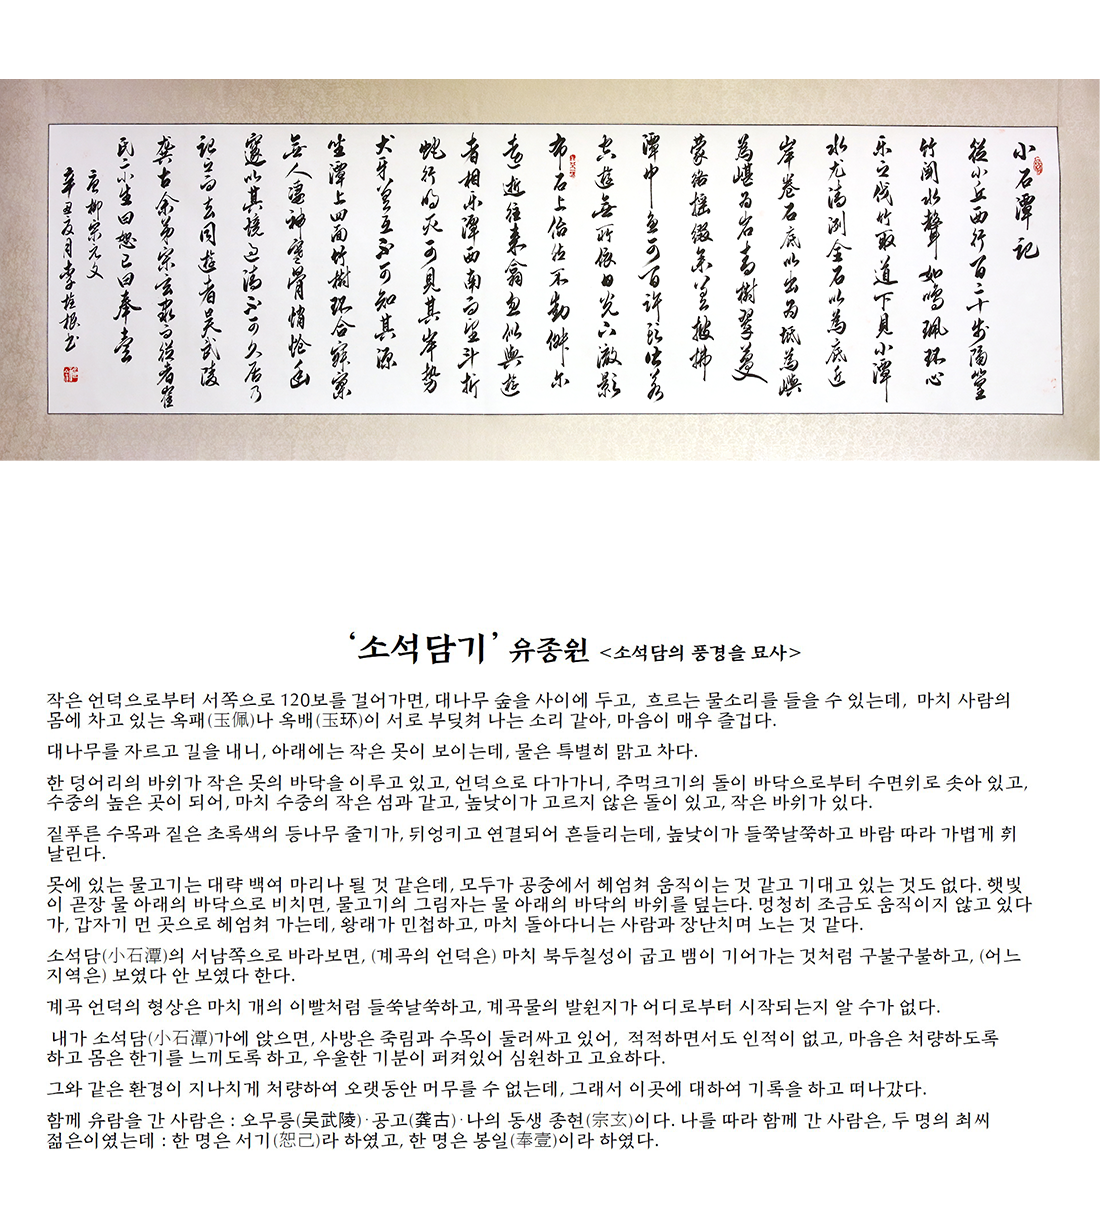 小石潭記
從小丘西行百二十步隔篁
竹聞水聲如鳴珮环心
乐之伐竹取道下見小潭
水尤清冽全石以為底近
岸卷石底以出為坻為嶼
為嵁為岩青樹翠蔓
蒙絡摇綴参差披拂
潭中魚可百许頭皆若
空遊無所依日光下澈影
布石上佁然不動俶尔
遠逝往来翕忽似與遊
者相乐潭西南而望斗折
蛇行明灭可見其岸勢
犬牙差互不可知其源
坐潭上四面竹樹环合寂寥
無人凄神寒骨悄怆幽
邃以其境过清不可久居乃
記之而去同遊者吴武陵
龚古余弟宗玄隶而從者崔
氏二小生曰恕己曰奉壹
唐柳宗元文
辛丑夏月李根书
‘소석담기’ 유종원 <소석담의 풍경을 묘사>
작은 언덕으로부터 서쪽으로 120보를 걸어가면, 대나무 숲을 사이에 두고, 흐르는 물소리를 들을 수 있는데, 마치 사람의
몸에 차고 있는 옥패(玉佩)나 옥배(玉环)이 서로 부딪쳐 나는 소리 같아, 마음이 매우 즐겁다.
대나무를 자르고 길을 내니, 아래에는 작은 못이 보이는데, 물은 특별히 맑고 차다.
한 덩어리의 바위가 작은 못의 바닥을 이루고 있고, 언덕으로 다가가니, 주먹크기의 돌이 바닥으로부터 수면위로 솟아 있고,
수중의 높은 곳이 되어, 마치 수중의 작은 섬과 같고, 높낮이가 고르지 않은 돌이 있고, 작은 바위가 있다.
짙푸른 수목과 짙은 초록색의 등나무 줄기가, 뒤엉키고 연결되어 흔들리는데, 높낮이가 들쭉날쭉하고 바람 따라 가볍게 휘
날린다.
못에 있는 물고기는 대략 백여 마리나 될 것 같은데, 모두가 공중에서 헤엄쳐 움직이는 것 같고 기대고 있는 것도 없다. 햇빛
이 곧장 물 아래의 바닥으로 비치면, 물고기의 그림자는 물 아래의 바닥의 바위를 덮는다. 멍청히 조금도 움직이지 않고 있다
가, 갑자기 먼 곳으로 헤엄쳐 가는데, 왕래가 민첩하고, 마치 돌아다니는 사람과 장난치며 노는 것 같다.
소석담(小石潭)의 서남쪽으로 바라보면, (계곡의 언덕은) 마치 북두칠성이 굽고 뱀이 기어가는 것처럼 구불구불하고, (어느
지역은) 보였다 안 보였다 한다.
계곡 언덕의 형상은 마치 개의 이빨처럼 들쑥날쑥하고, 계곡물의 발원지가 어디로부터 시작되는지 알 수가 없다.
내가 소석담(小石潭)가에 앉으면, 사방은 죽림과 수목이 둘러싸고 있어, 적적하면서도 인적이 없고, 마음은 처량하도록
하고 몸은 한기를 느끼도록 하고, 우울한 기분이 퍼져있어 심원하고 고요하다.
그와 같은 환경이 지나치게 처량하여 오랫동안 머무를 수 없는데, 그래서 이곳에 대하여 기록을 하고 떠나갔다.
함께 유람을 간 사람은 : 오무릉(吴武陵)·공고(龚古)·나의 동생 종현(宗玄)이다. 나를 따라 함께 간 사람은, 두 명의 최씨
젊은이였는데 : 한 명은 서기(恕己)라 하였고, 한 명은 봉일(奉壹)이라 하였다.